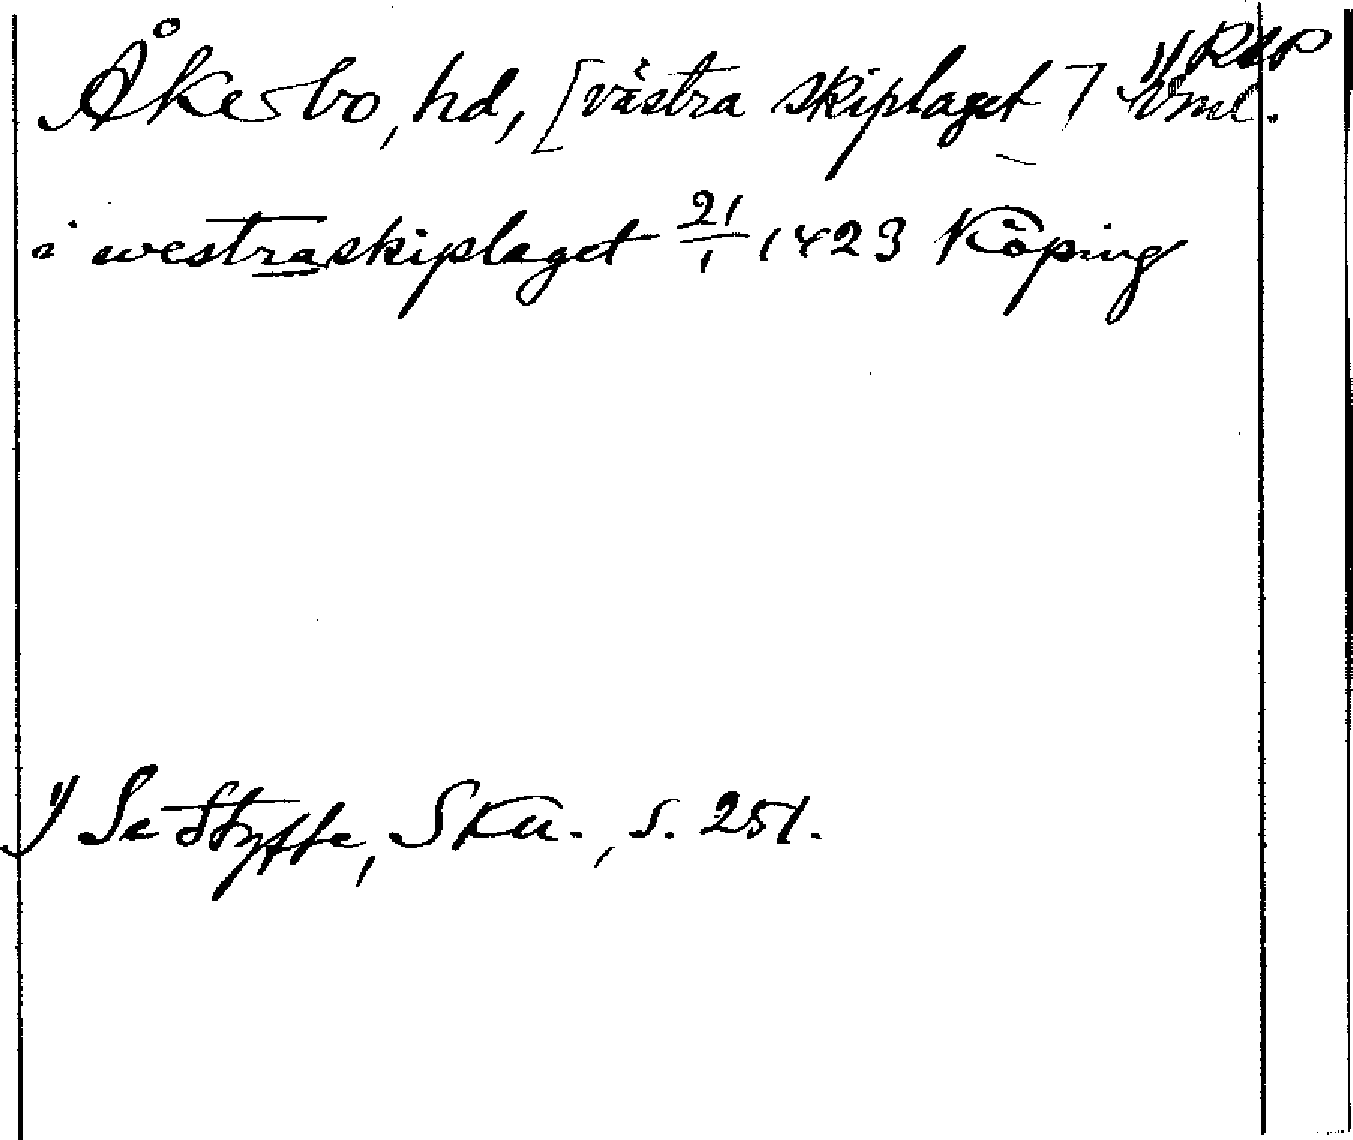 Åkerbo, hd, [västra skiplaget] 1) Vml. RAP
i westraskiplaget 21/1 1423 Köping
1) Se Styffe, Sku., s. 251.